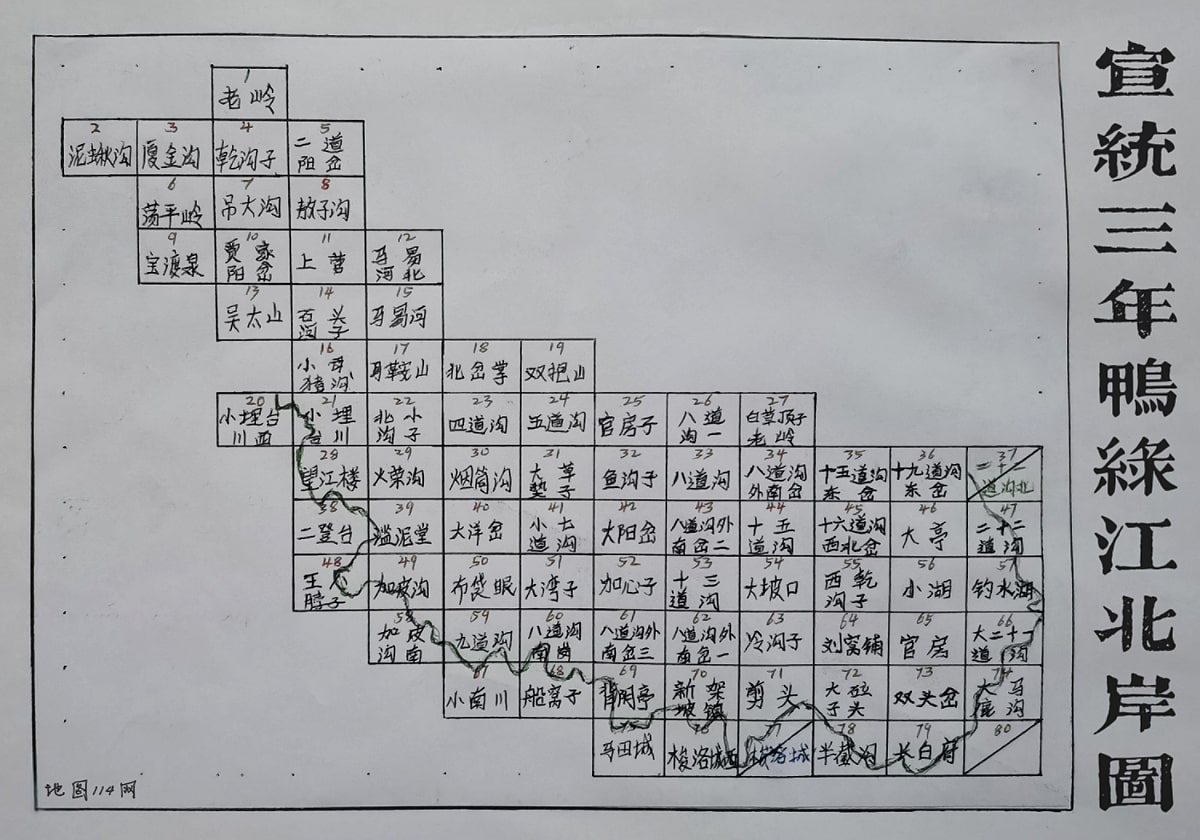 宣統三年鴨綠江北岸圖
1
老岭
2 3 4 5
泥揪沟 厦金沟 乾沟子 二道阳岔
6 7 8
荡平岭 吊大沟 敖子沟
9 10 11 12
宝渡泉 贾家阳岔 上营 马易河北
13 14 15
吴太山 石头沟子 马易河
16 17 18 19
小母猪沟 马鞍山 北岔掌 双把山
20 21 22 23 24 25 26 27
小埋台川西 小埋台川 北小沟子 四道沟 五道沟 官房子 八道沟一 白草顶子老岭
28 29 30 31 32 33 34 35 36 37
望江楼 火荣沟 烟筒沟 大草垫子 鱼沟子 八道沟 八道沟外南岔 十五道沟东岔 十九道沟东岔 二十一道沟北
38 39 40 41 42 43 44 45 46 47
二登台 滥泥堂 大洋岔 小七道沟 大阳岔 八道沟外南岔二 十五道沟 十六道沟西北岔 大亭 二十二道沟
48 49 50 51 52 53 54 55 56 57
王八脖子 加皮沟 布袋眼 大湾子 加心子 十三道沟 大坡口 西乾沟子 小湖 钓水湖
58 59 60 61 62 63 64 65 66
加皮沟南 九道沟 八道沟南岗 八道沟外南岔三 八道沟外南岔一 冷沟子 刘窝铺 官房 大二十一道沟
67 68 69 70 71 72 73 74
小南川 船窝子 背阴亭 新架坡镇 剪头 大砬子头 双头岔 大马鹿沟
75 76 77 78 79 80
马田城 梭洛城西 梭洛城 半截沟 长白府
地图114网